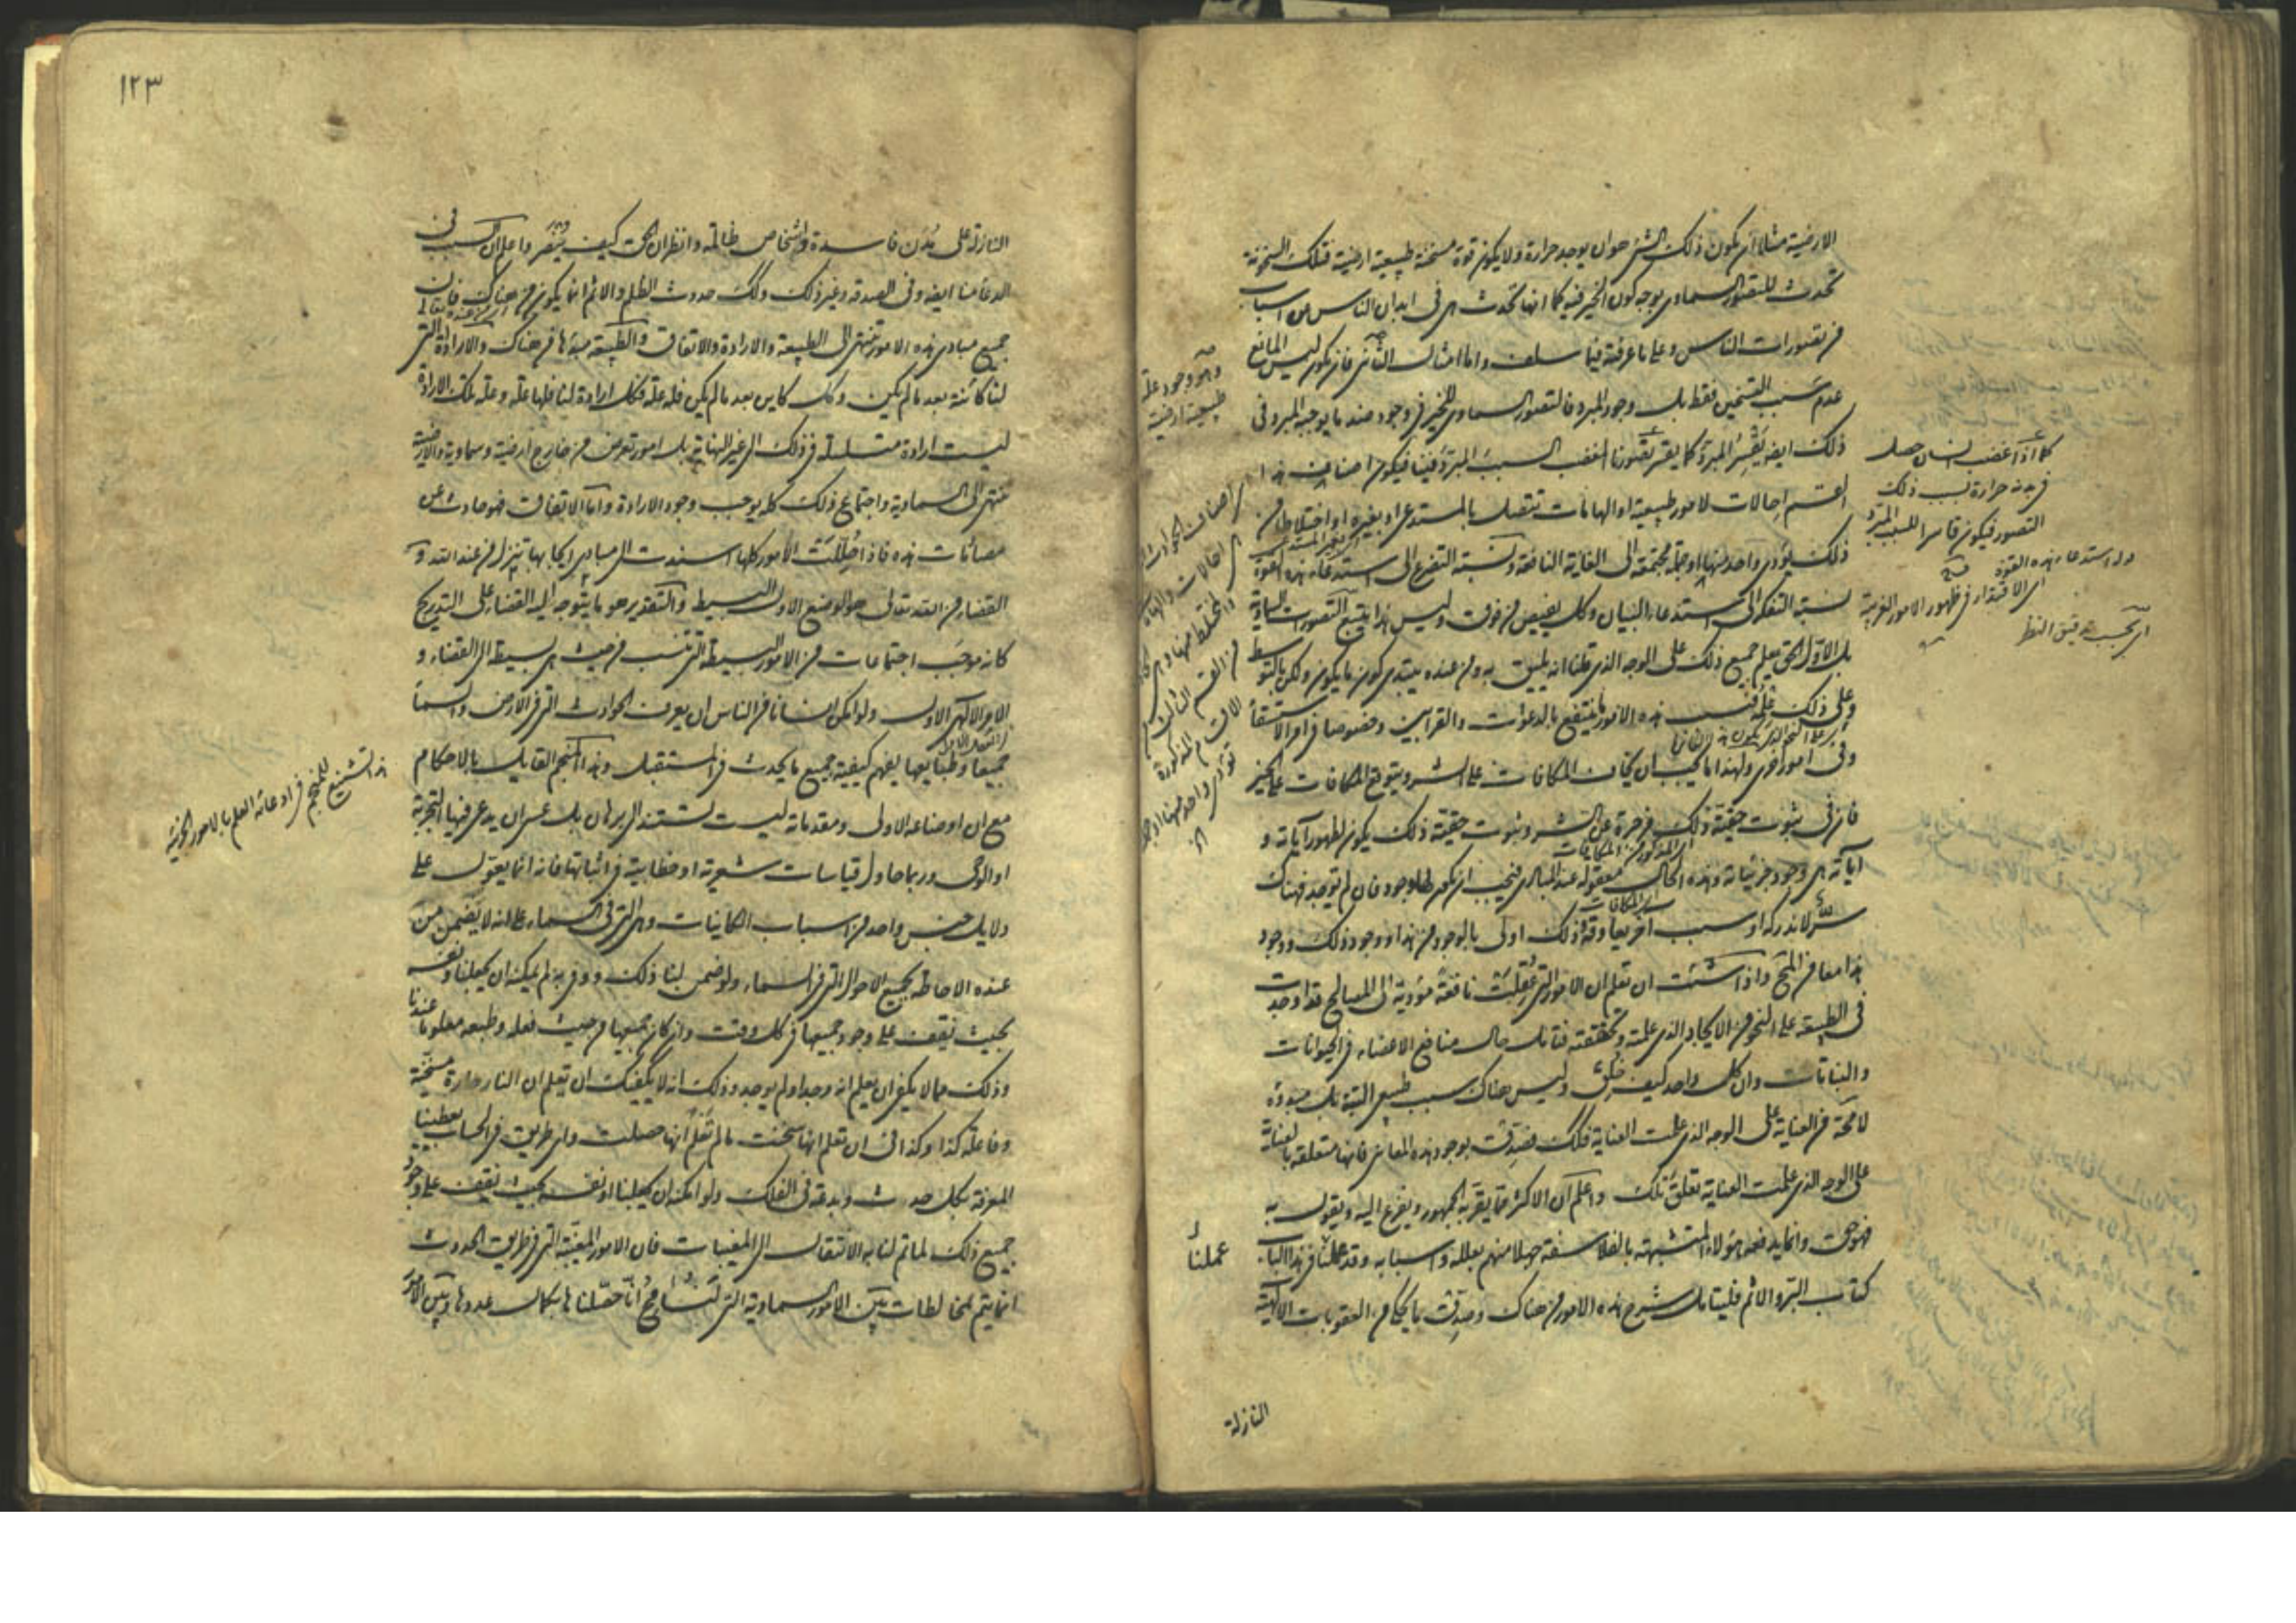 الارضية مثلا ان يكون ذلك الشئ هو ان يوجد حرارة ولا يكون قوة مسخنة طبيعية ارضية فتلك السخونة
تحدث للتصور السماوى بوجه كون الخير فيه كما انها تحدث هى فى ابدان الناس من اسباب
من تصورات الناس وعلى ما عرفته فيما سلف واما مثال الثانى فان يكون ليس المانع
عدم سبب التسخين فقط بل وجود المبرد فالتصور السماوى للخير فى وجود ضد ما يوجبه المبرد فى
ذلك ايضا يقسر المبرد كما يقسر تصورنا المغضب السبب المبرد فينا فيكون اصناف هذا
القسم احالات لامور طبيعية او الهامات تتصل بالمستدعى او بغيره او اختلاطا من
ذلك يؤدى واحد منها او جملة مجتمعة الى الغاية النافعة ونسبة التضرع الى استدعاء هذه القوة
نسبة التفكر الى استدعاء البيان وكل يفيض من فوق وليس هذا يتبع التصورات السماوية
بل الاول الحق يعلم جميع ذلك على الوجه الذى قلنا انه يليق به ومن عنده يبتدى كون ما يكون ولكن بالتوسط
وعلى ذلك علمه فبسبب هذه الامور ما ينتفع بالدعوات والقرابين وخصوصا فى امر الاستسقاء
وفى امور اخرى ولهذا ما يجب ان يخاف المكافات على الشر ويتوقع المكافات على الخير
فان فى ثبوت حقيقة ذلك مزجرة عن الشر وثبوت حقيقة ذلك يكون لظهور آياته و
آياته هى وجود جزئياته وهذه الحال معقولة عند المبادى فيجب ان يكون لها وجود فان لم توجد فهناك
شر لا ندركه او سبب آخر يعاوقه وذلك اولى بالوجود من هذا ووجود ذلك ووجود
هذا معا من المحال واذا شئت ان تعلم ان الامور التى عقلت نافعة مؤدية الى المصالح قد اوجدت
فى الطبيعة على النحو من الايجاد الذى علمته وتحققته فتامل حال منافع الاعضاء فى الحيوانات
والنباتات وان كل واحد كيف خلق وليس هناك سبب طبيعى البتة بل مبدؤه
لا محالة من العناية على الوجه الذى علمت العناية فكذلك فصدق بوجود هذه المعانى فانها متعلقة بالعناية
على الوجه الذى علمت العناية تعلق تلك واعلم ان الاكثر مما يقر به الجمهور ويفزع اليه ويقول به
فهو حق وانما يدفعه هؤلاء المتشبهة بالفلاسفة جهلا منهم بعلله واسبابه وقد عملنا فى هذا الباب
كتاب البر والاثم فليتامل شرح هذه الامور من هناك وصدق بما يحكى من العقوبات الالهية
النازلة
عملنا
كما اذا غضب انسان حصل
فى بدنه حرارة بسبب ذلك
التصور فيكون قاسرا للسبب المبرد
اى بحسب دقيق النظر
وهو وجود علة
طبيعية ارضية
١٢٣
النازلة على مدن فاسدة واشخاص ظالمة وانظر ان الحق كيف ينصر واعلم ان السبب فى
الدعاء منا ايضا وفى الصدقة وغير ذلك وكذلك حدوث الظلم والاثم انما يكون من هناك فان
جميع مبادى هذه الامور تنتهى الى الطبيعة والارادة والاتفاق والطبيعة مبدؤها من هناك والارادة التى
لنا كائنة بعد ما لم يكن وكل كاين بعد ما لم يكن فله علة فكل ارادة لنا فلها علة وعلة تلك الارادة
ليست ارادة متسلسلة فى ذلك الى غير النهاية بل امور تعرض من خارج ارضية وسماوية والارضية
تنتهى الى السماوية واجتماع ذلك كله يوجب وجود الارادة واما الاتفاق فهو حادث عن
مصادمات هذه فاذا حللت الامور كلها استندت الى مبادى ايجابها تنزل من عند الله و
القضاء من الله تعالى هو الوضع الاول البسيط والتقدير هو ما يتوجه اليه القضاء على التدريج
كانه موجب اجتماعات من الامور البسيطة التى تنسب من حيث هى بسيطة الى القضاء و
الامر الالهى الاول ولو امكن انسانا من الناس ان يعرف الحوادث التى فى الارض والسماء
جميعا وطبايعها لفهم كيفية جميع ما يحدث فى المستقبل وهذا المنجم القايل بالاحكام
مع ان اوضاعه الاولى ومقدماته ليست تستند الى برهان بل عسى ان يدعى فيها التجربة
او الوحى وربما حاول قياسات شعرية او خطابية فى اثباتها فانه انما يعول على
دلايل جنس واحد من اسباب الكاينات وهى التى فى السماء على انه لا يضمن من
عنده الاحاطة بجميع الاحوال التى فى السماء ولو ضمن لنا ذلك ووفى به لم يمكنه ان يجعلنا ونفسه
بحيث نقف على وجود جميعها فى كل وقت وان كان جميعها من حيث فعله وطبعه معلوما عندنا
وذلك مما لا يكفى ان يعلم انه وجد او لم يوجد وذلك انه لا يكفيك ان تعلم ان النار حارة مسخنة
وفاعلة كذا وكذا فى ان تعلم انها سخنت ما لم تعلم انها حصلت واى طريق فى الحساب يعطينا
المعرفة بكل حدث وبدعة فى الفلك ولو امكنه ان يجعلنا ونفسه بحيث نقف على وجود
جميع ذلك لما تم لنا به الانتقال الى المغيبات فان الامور المغيبة التى فى طريق الحدوث
انما يتم بمخالطات بين الامور السماوية التى لنسامح انا حصلناها بكمال عددها وبين الامور
هذا تشنيع للمنجم فى ادعائه العلم بالامور الجزئية